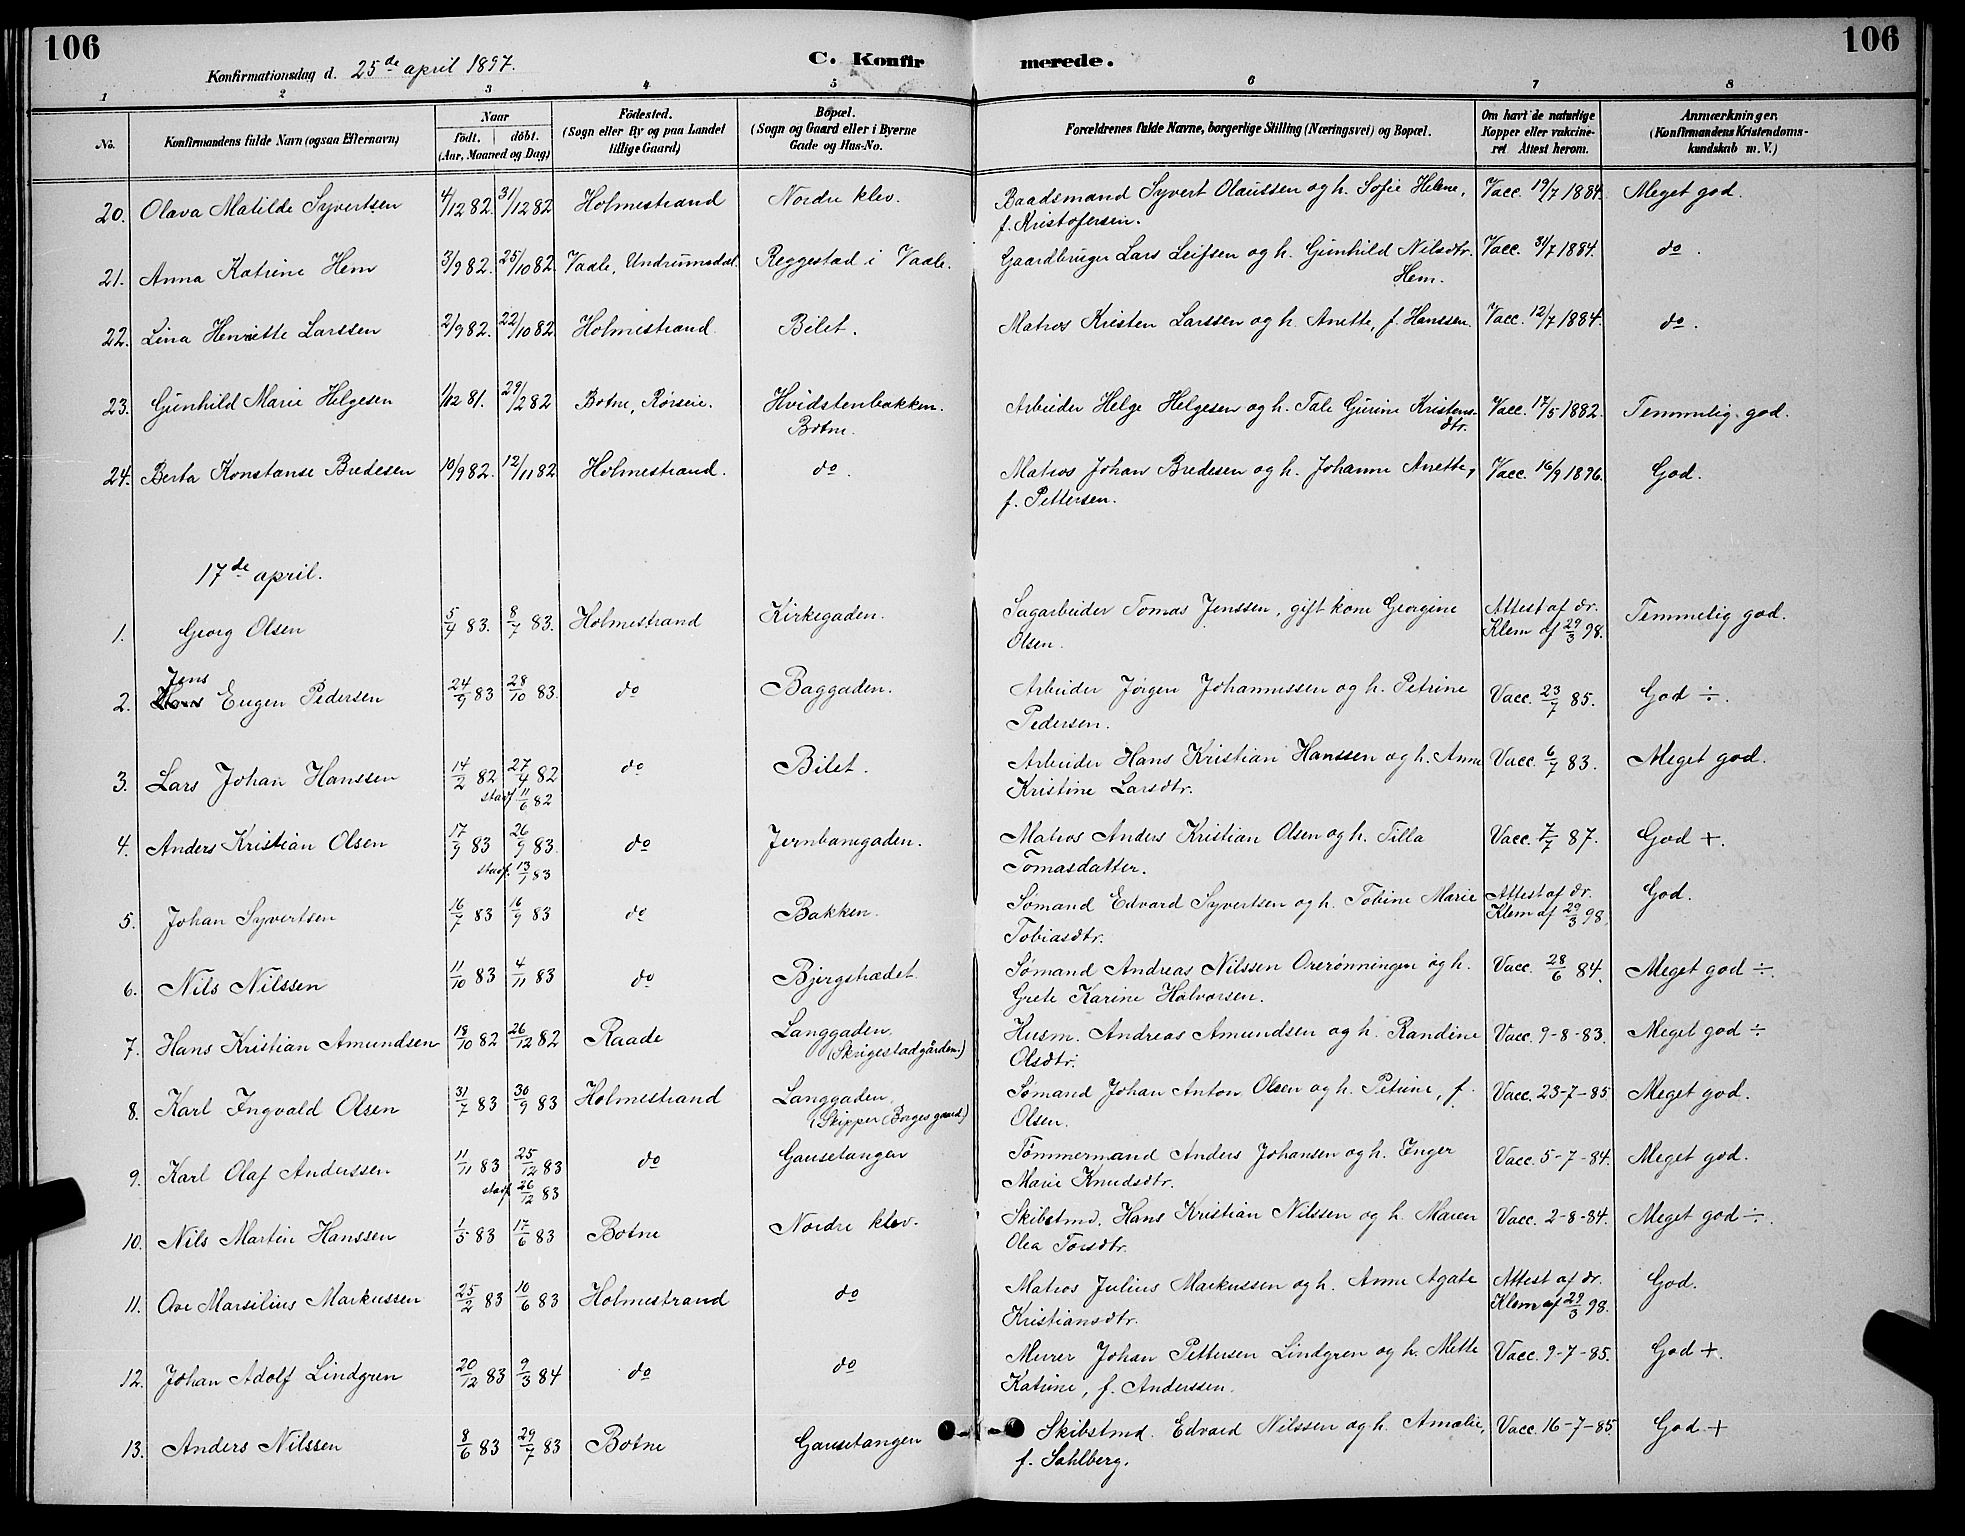 106
Konfirmationsdag d. 25de april 1897.
C. Konfir
merede.
106
1 2 3 4 5 6 7 8
No.
Konfirmandens fulde Navn (ogsaa Efternavn)
Naar
födt. döbt.
(Aar, Maaned og Dag)
Födested.
(Sogn eller By og paa Landet
tillige Gaard)
Bopæl.
(Sogn og Gaard eller i Byerne
Gade og Hus-No.
Forældrenes fulde Navne, borgerlige Stilling (Næringsvei) og Bopæl.
Om havt de naturlige
Kopper eller vakcine-
ret Attest herom.
Anmærkninger.
(Konfirmandens Kristendoms-
kundskab m. V.)
20. Olava Matilde Syvertsen 4/12 82. 31/12 82 Holmestrand Nordre klev. Baadsmand Syvert Olaussen og h. Sofie Helene, Vacc. 19/7 1884. Meget god.
f. Kristofersen.
21. Anna Katrine Hem 3/9 82. 25/10 82. Vaale, Undrumsdal Reggestad i Vaale. Gaardbruger Lars Leifsen og h. Gunhild Nilsdtr. Vacc. 31/7 1884. do.
Hem.
22. Lina Henriette Larssen 2/9 82. 22/10 82 Holmestrand Bilet. Matros Kristen Larssen og h. Anette, f. Hanssen. Vacc. 12/7 1884. do.
23. Gunhild Marie Helgesen 1/12 81. 29/2 82 Botne, Rørseie. Hvidstenbakken. Arbeider Helge Helgesen og h. Tale Gurine Kristens- Vacc. 17/5 1882. Temmelig god.
Botne. dtr.
24. Berta Konstanse Bredesen 10/9 82. 12/11 82 Holmestrand. do. Matros Johan Bredesen og h. Johanne Anette, Vacc. 16/9 1896. God.
f. Pettersen.
17de april.
1. Georg Olsen 5/4 83. 8/7 83. Holmestrand Kirkegaden. Sagarbeider Tomas Jenssen, gift kone Georgine Attest af dr. Temmelig god.
Olsen. Klem af 29/3 98.
Jens
2. Eugen Pedersen 24/9 83 28/10 83. do Baggaden. Arbeider Jørgen Johannessen og h. Petrine Vacc. 23/7 85. God ÷.
Pedersen.
3. Lars Johan Hanssen 14/2 82 27/4 82 do Bilet. Arbeider Hans Kristian Hanssen og h. Anne Vacc. 6/7 83. Meget god.
stadf. 11/6 82 Kristine Larsdtr.
4. Anders Kristian Olsen 17/9 83 26/9 83. do Jernbanegaden. Matros Anders Kristian Olsen og h. Tilla Vacc. 7/7 87. God +.
stadf. 83 Tomasdatter.
5. Johan Syvertsen 16/7 83 16/9 83 do Bakken. Sømand Edvard Syvertsen og h. Tobine Marie Attest af dr. God.
Tobiasdtr. Klem af 29/3 98.
6. Nils Nilssen 11/10 83 4/11 83 do Bjergstrædet. Sømand Andreas Nilssen Orerønningen og h. Vacc. 28/6 84. Meget god ÷.
Grete Karine Halvorsen.
7. Hans Kristian Amundsen 18/10 82 26/12 82 Raade Langgaden. Husm. Andreas Amundsen og h. Randine Vacc. 9-8-83. Meget god ÷
(Skrigestadgården.) Olsdtr.
8. Karl Ingvald Olsen 31/7 83 30/9 83 Holmestrand Langgaden. Sømand Johan Anton Olsen og h. Petrine, f. Vacc. 23-7-85. Meget god.
(Skipper Borges gaard.) Olsen.
9. Karl Olaf Anderssen 11/11 83 25/12 83 do Gausetangen Tømmermand Anders Johansen og h. Inger Vacc. 5-7-84. Meget god.
stadf. 26/12 83 Marie Knudsdtr.
10. Nils Martin Hanssen 1/5 83 17/6 83 Botne Nordre klev. Skibstmd. Hans Kristian Nilssen og h. Maren Vacc. 2-8-84. Meget god ÷.
Olea Torsdtr.
11. Ove Marsilius Markussen 25/2 83 10/6 83 Holmestrand do Matros Julius Markussen og h. Anne Agate Attest af dr. God.
Kristiansdtr. Klem af 29/3 98.
12. Johan Adolf Lindgren 20/12 83 9/3 84 do do Murer Johan Pettersen Lindgren og h. Mette Vacc. 9-7-85. God +.
Katrine, f. Anderssen.
13. Anders Nilssen 8/6 83 29/7 83 Botne Gausetangen Skibstmd. Edvard Nilssen og h. Amalie, Vacc. 16-7-85 God +
f. Sahlberg.